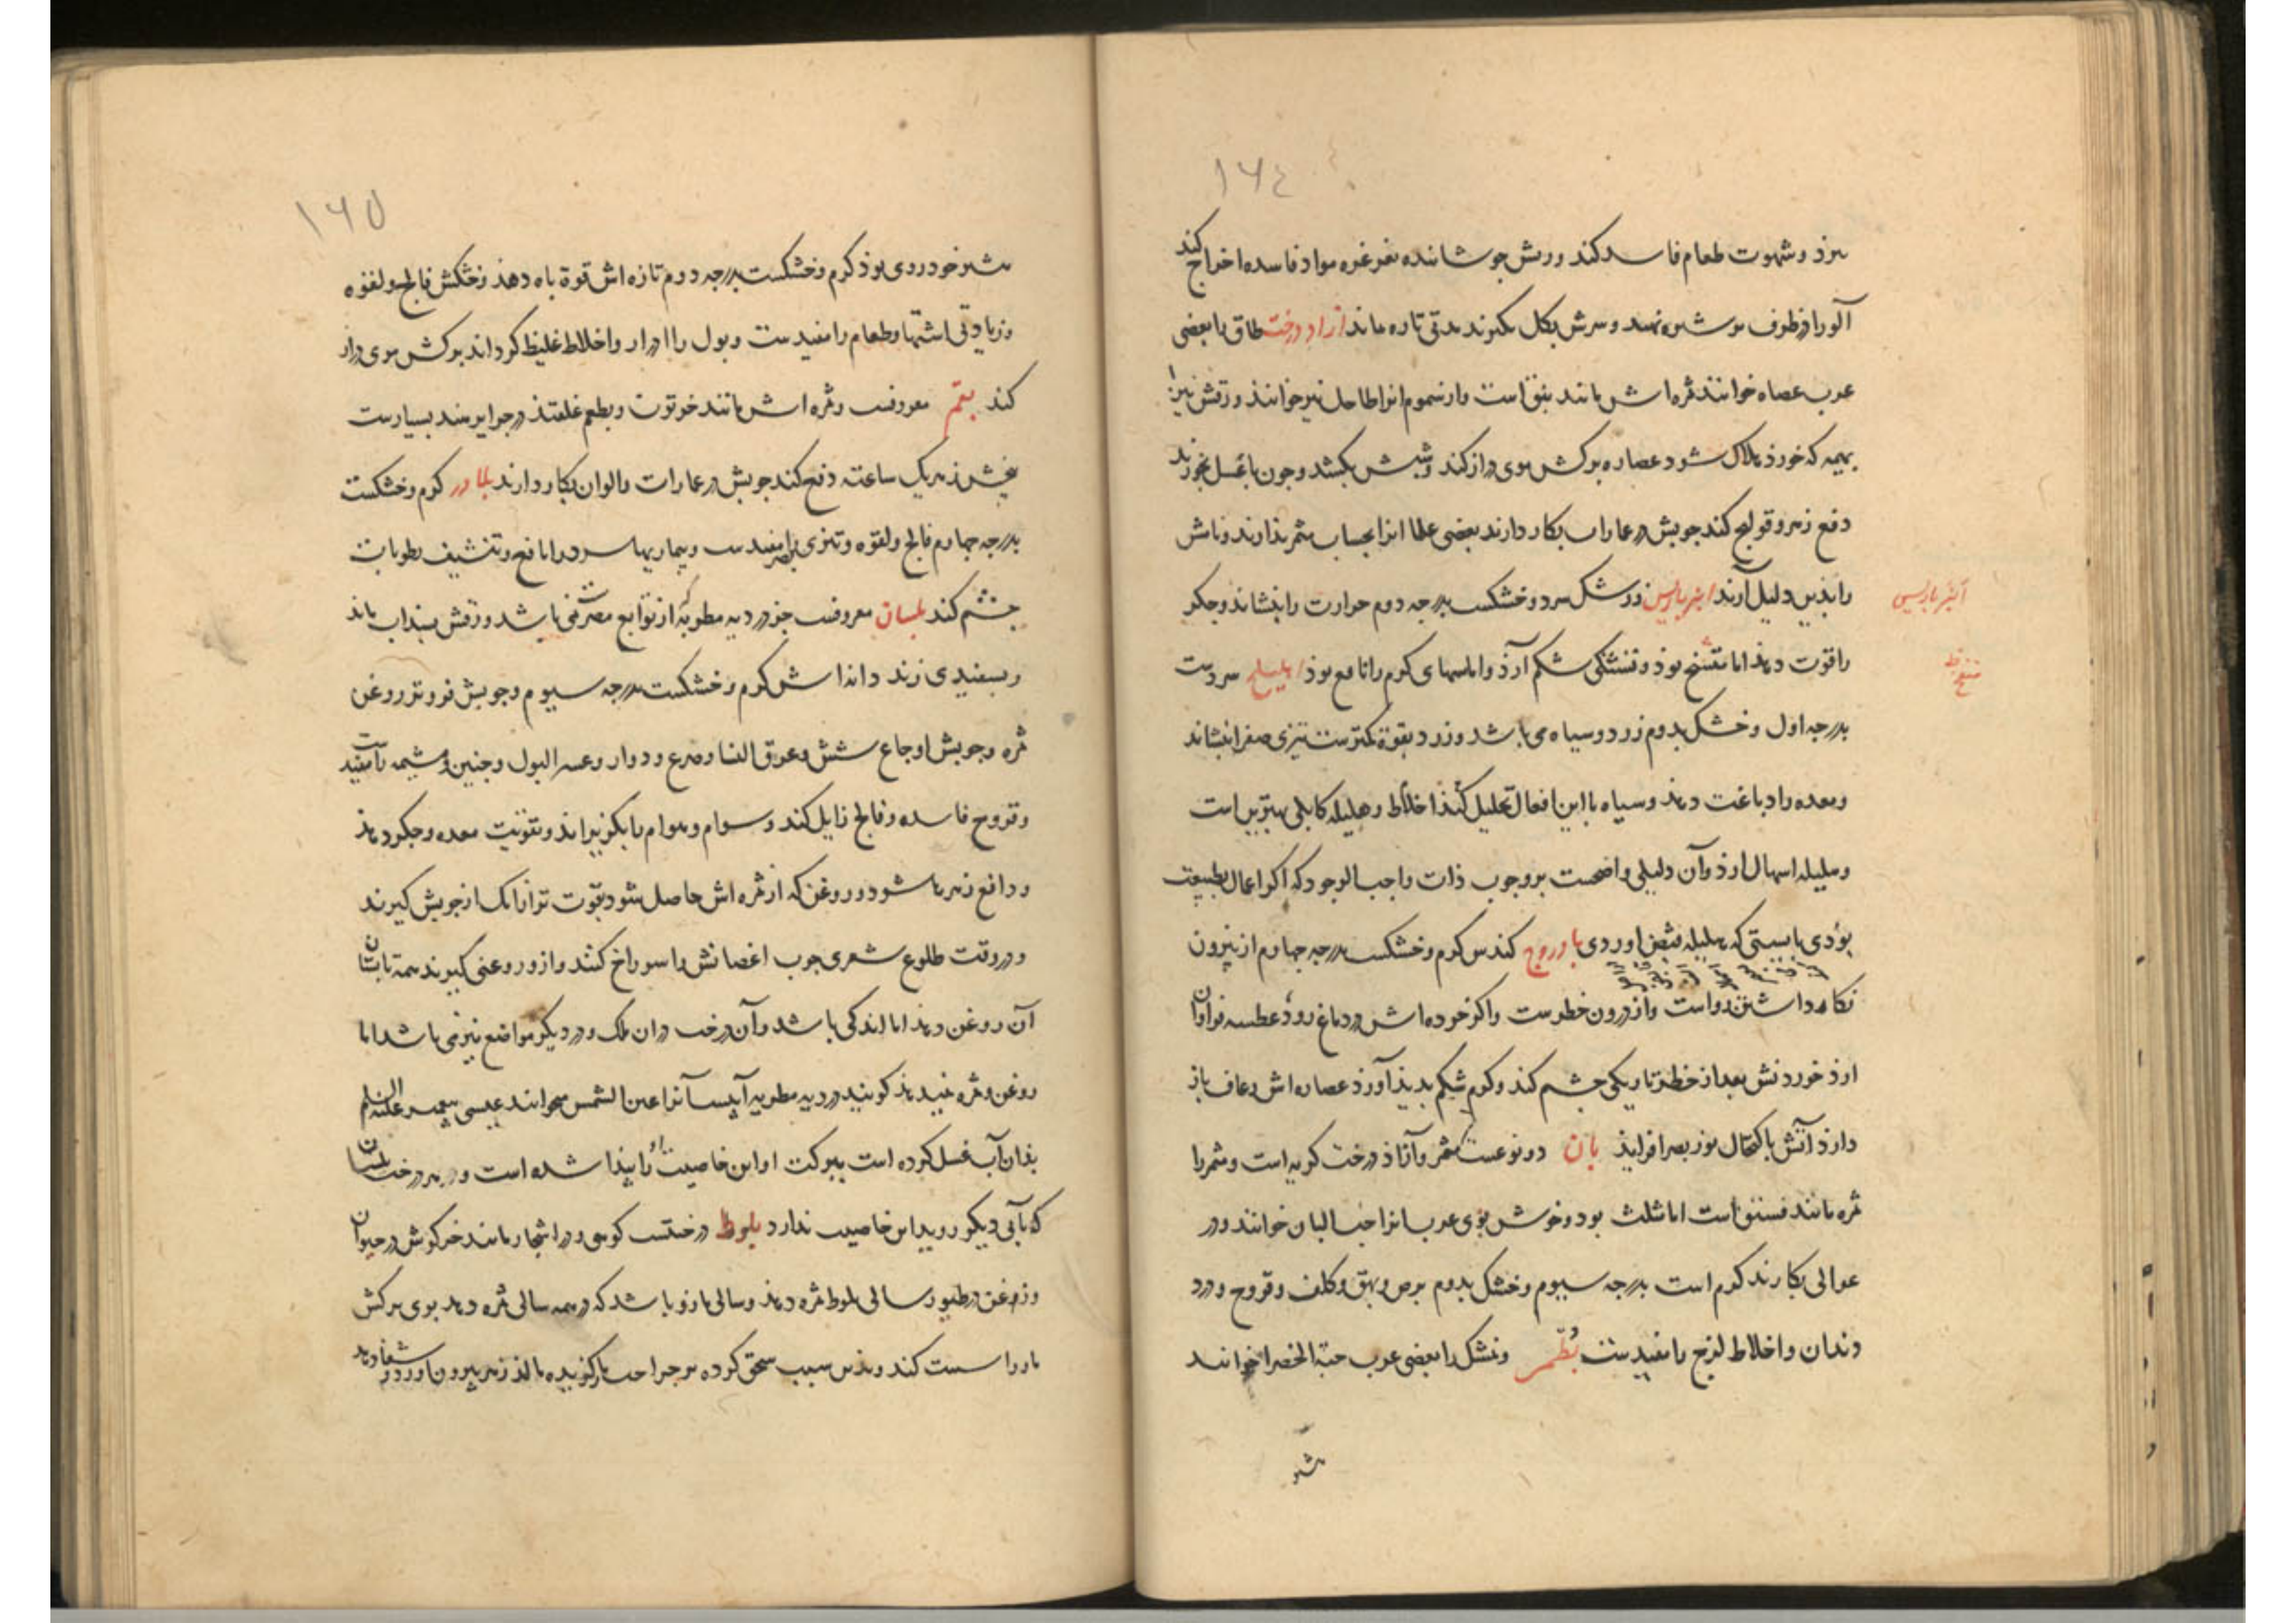 ١٦٤
ببرد و شهوت طعام فاسد کند ورقش جوشانده بغرغره مواد فاسده اخراج کند
آلو را در ظرف نهند و سرش بکل گیرند مدتی تازه ماند ازاد درخت طاق با بعضی
عرب عصاه خوانند ثمره اش مانند نبق است و از سموم انرا طاحل نیز خوانند ورقش نیز
بهیمه که خورد هلاک شود عصاره برکش موی دراز کند و شبش بکشد و چون با عسل بخورند
دفع زهر و قولنج کند چوبش در عمارات بکار دارند بعضی علما انرا بحساب مثمر ندارند و نامش
را بذین دلیل آرند انبرباریس زرشک سرد و خشکست بدرجه دوم حرارت را بنشاند و جکر
انبرباریس
را قوت دهد اما مشنج بوذ و تشنگی شکم آرذ و اماسهای کرم را نافع بوذ اهلیلج سردست
بدرجه اول و خشک بدوم زرد و سیاه می باشد و زرد بقوة کمترست تیزی صفرا بنشاند
و معده را دباغت دهذ و سیاه با این افعال تحلیل کند اخلاط و هلیله کابلی بهترین است
و هلیله اسهال ارذ و آن دلیلی واضحست بر وجوب ذات واجب الوجود که اگر اعمال بطبیعت
بوذی بایستی که هلیله قبض اوردی باروج کندس کرم و خشکست بدرجه چهارم از بیرون
نکاه داشتن رواست و از درون خطرست و اکر خوده اش در دماغ روذ عطسه فراوان
ارذ خوردنش بعد از خطر تاریکی چشم کند و کرم شکم بدیذ آورذ عصاره اش رعاف باز
دارذ آتش باکتحال نور بصر افزایذ بان دو نوعست مثمر و آزاذ درخت کربه است و مثمر را
ثمره مانند فستق است اما مثلث بود و خوش بوی عرب انرا حب البان خوانند و در
عوالی بکار برند کرم است بدرجه سیوم و خشک بدوم برص و بهق و کلف و قروح و درد
دندان و اخلاط لزج را مفیدست بطم ونشک را بعضی عرب حبة الخضرا خوانند
١٦٥
بیشتر خودروی بوذ کرم و خشکست بدرجه دوم تازه اش قوة باه دهذ و خشکش فالج و لقوه
و زیادتی اشتها و طعام را مفیدست و بول را ادرار و اخلاط غلیظ کرداند برکش موی دراز
کند بقم معروفست و ثمره اش مانند خرتوت و بطعم غلفتذ در جزایر هند بسیارست
بیخش زهر یک ساعته دفع کند چوبش در عمارات و الوان بکار دارند بلادر کرم و خشکست
بدرجه چهارم فالج و لقوه و تیزی بصر را مفیدست و بیماریهاء سرد را نافع و تنشیف رطوبات
چشم کند بلسان معروفست جز در دیه مطریه از توابع مصر نمی باشد ورقش بسذاب ماند
و بسفیدی زند دانه اش کرم و خشکست بدرجه سیوم و چوبش فروتر روغن
ثمره و چوبش اوجاع شش و عرق النسا و صرع و دوار و عسر البول و جنین و مشیمه را مفیدست
و قروح فاسده و فالج زایل کند و سوام و هوام را بکریزاند و تقویت معده و جکر دهذ
و دافع زهر باشد و روغن که از ثمره اش حاصل شود بقوت تر از انک از چوبش کیرند
و در وقت طلوع شعری چوب اغصانش را سوراخ کنند و از و روغن کیرند همه تابستان
آن روغن دهذ اما اندکی باشد و آن درخت در ان ملک و در دیکر مواضع نیز می باشد اما
روغن و ثمره نمیدهذ کویند در دیه مطریه آبیست آنرا عین الشمس میخوانند عیسی پیغمبر علیه السلم
بذان آب غسل کرده است ببرکت او این خاصیت پیدا شده است و بهر درخت بلسان
که بآبی دیکر روید این خاصیت ندارد بلوط درختیست کوهی و در اشجار مانند خرکوش در حیوان
و زغن در طیور سالی بلوط ثمره دهذ و سالی مازو باشد که در همه سالی ثمره دهد بوی برکش
مار را سست کند و بذین سبب سحق کرده بر جراحت مارکزیده مالند زهر بیرون اورد و شفا دهد